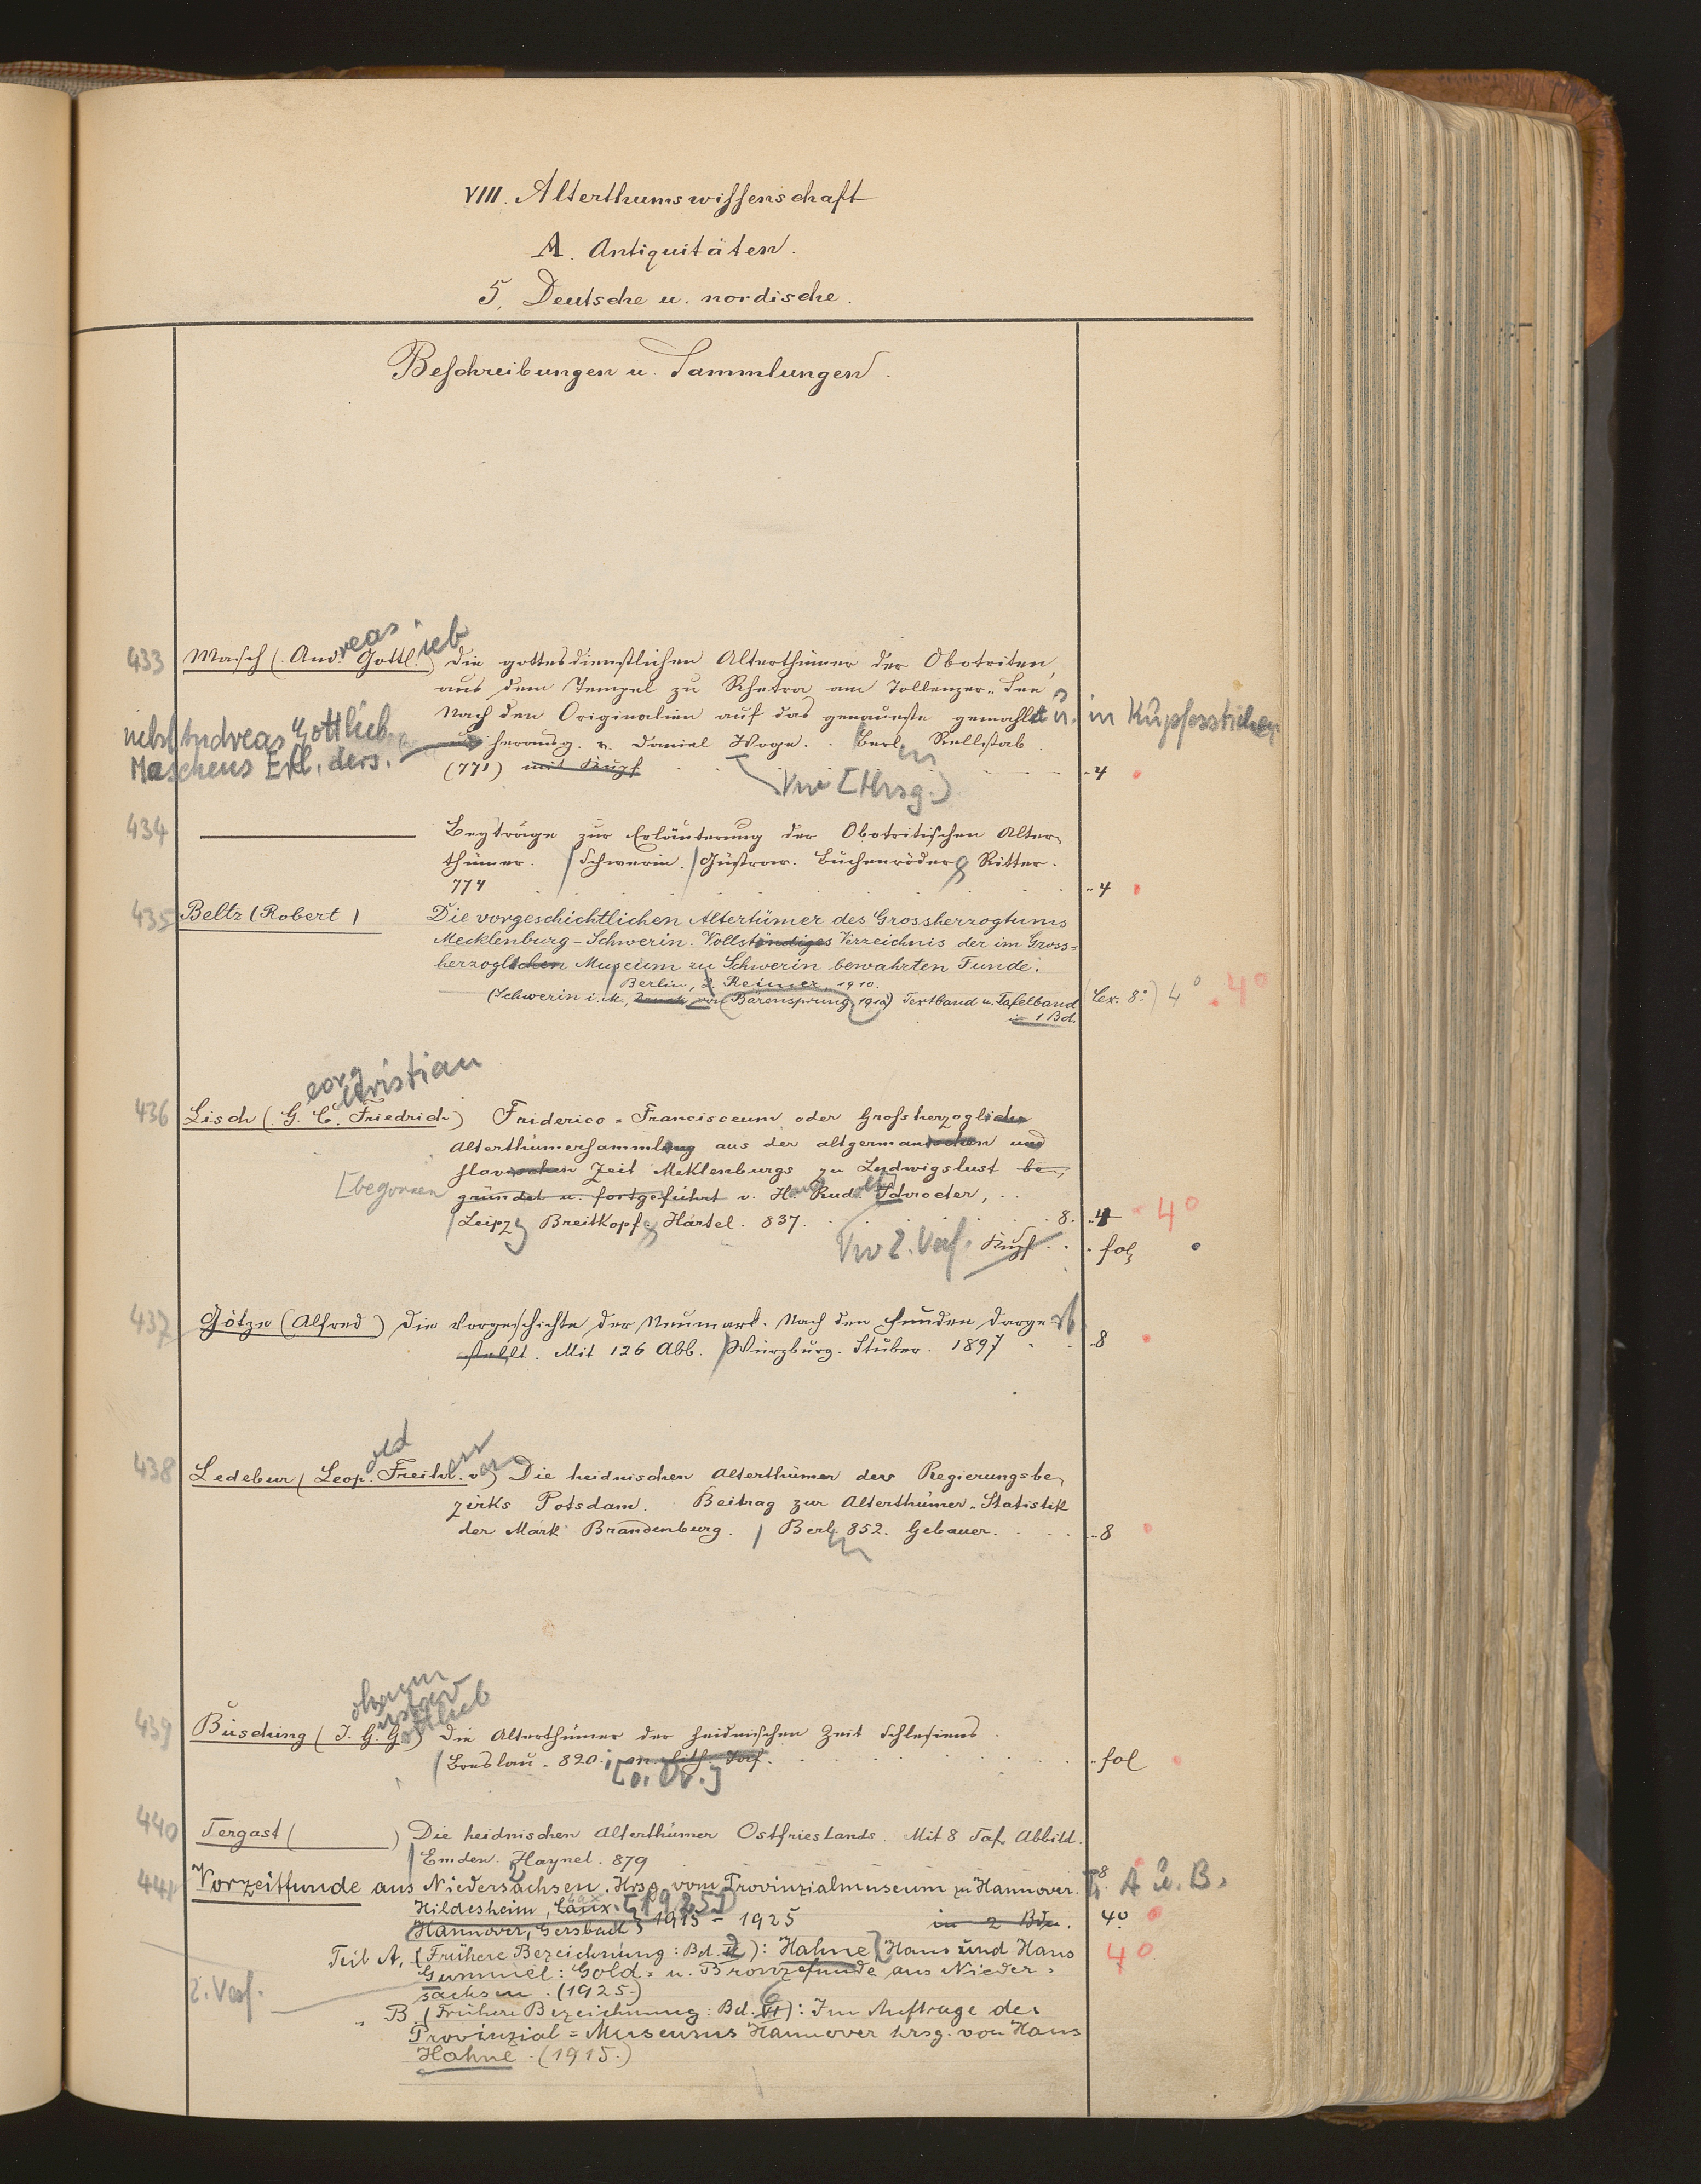 VIII. Alterthumswissenschaft
A. Antiquitäten.
5. Deutsche u. nordische.
Beschreibungen u. Sammlungen.
433 Masch (And.reas Gottl.ieb) Die gottesdienstlichen Alterthümer der Obotriten,
aus dem Tempel zu Rhetra am Tollenzer-See
Nach den Originalien auf das genaueste gemahlt u. in Kupferstichen
nebst Andreas Gottlieb
Maschens Erl. ders.
herausg. v. Daniel Woge. Berlin Rellstab.
(771) mit Kupf 4
[Hrsg.)
434 ——— Beyträge zur Erläuterung der Obotritischen Alter-
thümer. Schwerin. Güstrow. Buchenröder & Ritter.
774 4
435 Beltz (Robert) Die vorgeschichtlichen Altertümer des Grossherzogtums
Mecklenburg-Schwerin. Vollständiges Verzeichnis der im Gross=
herzoglichen Museum zu Schwerin bewahrten Funde.
Berlin, D. Reimer, 1910.
(Schwerin i. M., Druck von Bärensprung, 1912) Textband u. Tafelband (Lex. 8°) 4° 4°
in 1 Bd.
eorg Christian
436 Lisch (G. C. Friedrich) Friderico-Francisceum oder Grossherzogliche
Alterthümersammlung aus der altgermanischen und
slavischen Zeit Meklenburgs zu Ludwigslust be-
[begonnen gründet u. fortgeführt v. H. Rud. Schroeter,
Leipz Breitkopf & Härtel. 837. 8. 4 4°
2. Verf. Kupf. fol
437 Götze (Alfred) Die Vorgeschichte der Neumark. Nach den Funden darge
stellt. Mit 126 Abb. Würzburg. Stuber. 1897 8
438 Ledebur (Leop.old Freiherr von) Die heidnischen Alterthümer des Regierungsbe-
zirks Potsdam. Beitrag zur Alterthümer-Statistik
der Mark Brandenburg. Berlin 852. Gebauer. 8
ohann
ustav
ottlieb
439 Büsching (J. G. G.) Die Alterthümer der heidnischen Zeit Schlesiens.
Breslau. 820.
[o. Dr.] fol
440 Tergast ( ) Die heidnischen Alterthümer Ostfrieslands. Mit 8 Taf. Abbild.
Emden. Haynel. 879 8
441 Vorzeitfunde aus Niedersachsen. Hrsg. vom Provinzialmuseum zu Hannover. T. A u. B.
Hildesheim, Lax. [1925]
Hannover, Gersbach 1915 - 1925 in 2 Bdn. 4°
Teil A. (Frühere Bezeichnung: Bd. II): Hahne, Hans und Hans 4°
Gummel: Gold- u. Bronzefunde aus Nieder-
2. Verf. sachsen. (1925.)
" B. (Frühere Bezeichnung: Bd. VI): Im Auftrage des
Provinzial=Museums Hannover hrsg. von Hans
Hahne. (1915.)